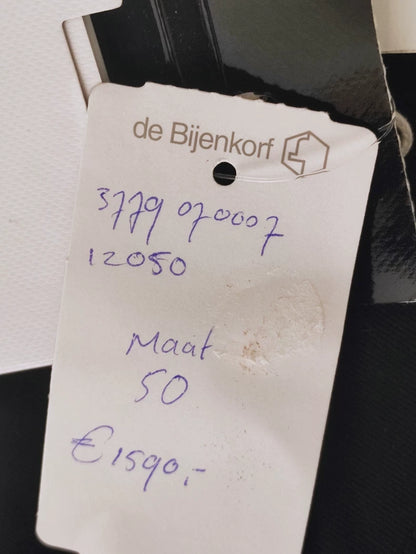 de Bijenkorf
3779 070007
12050
Maat
50
€1590,-